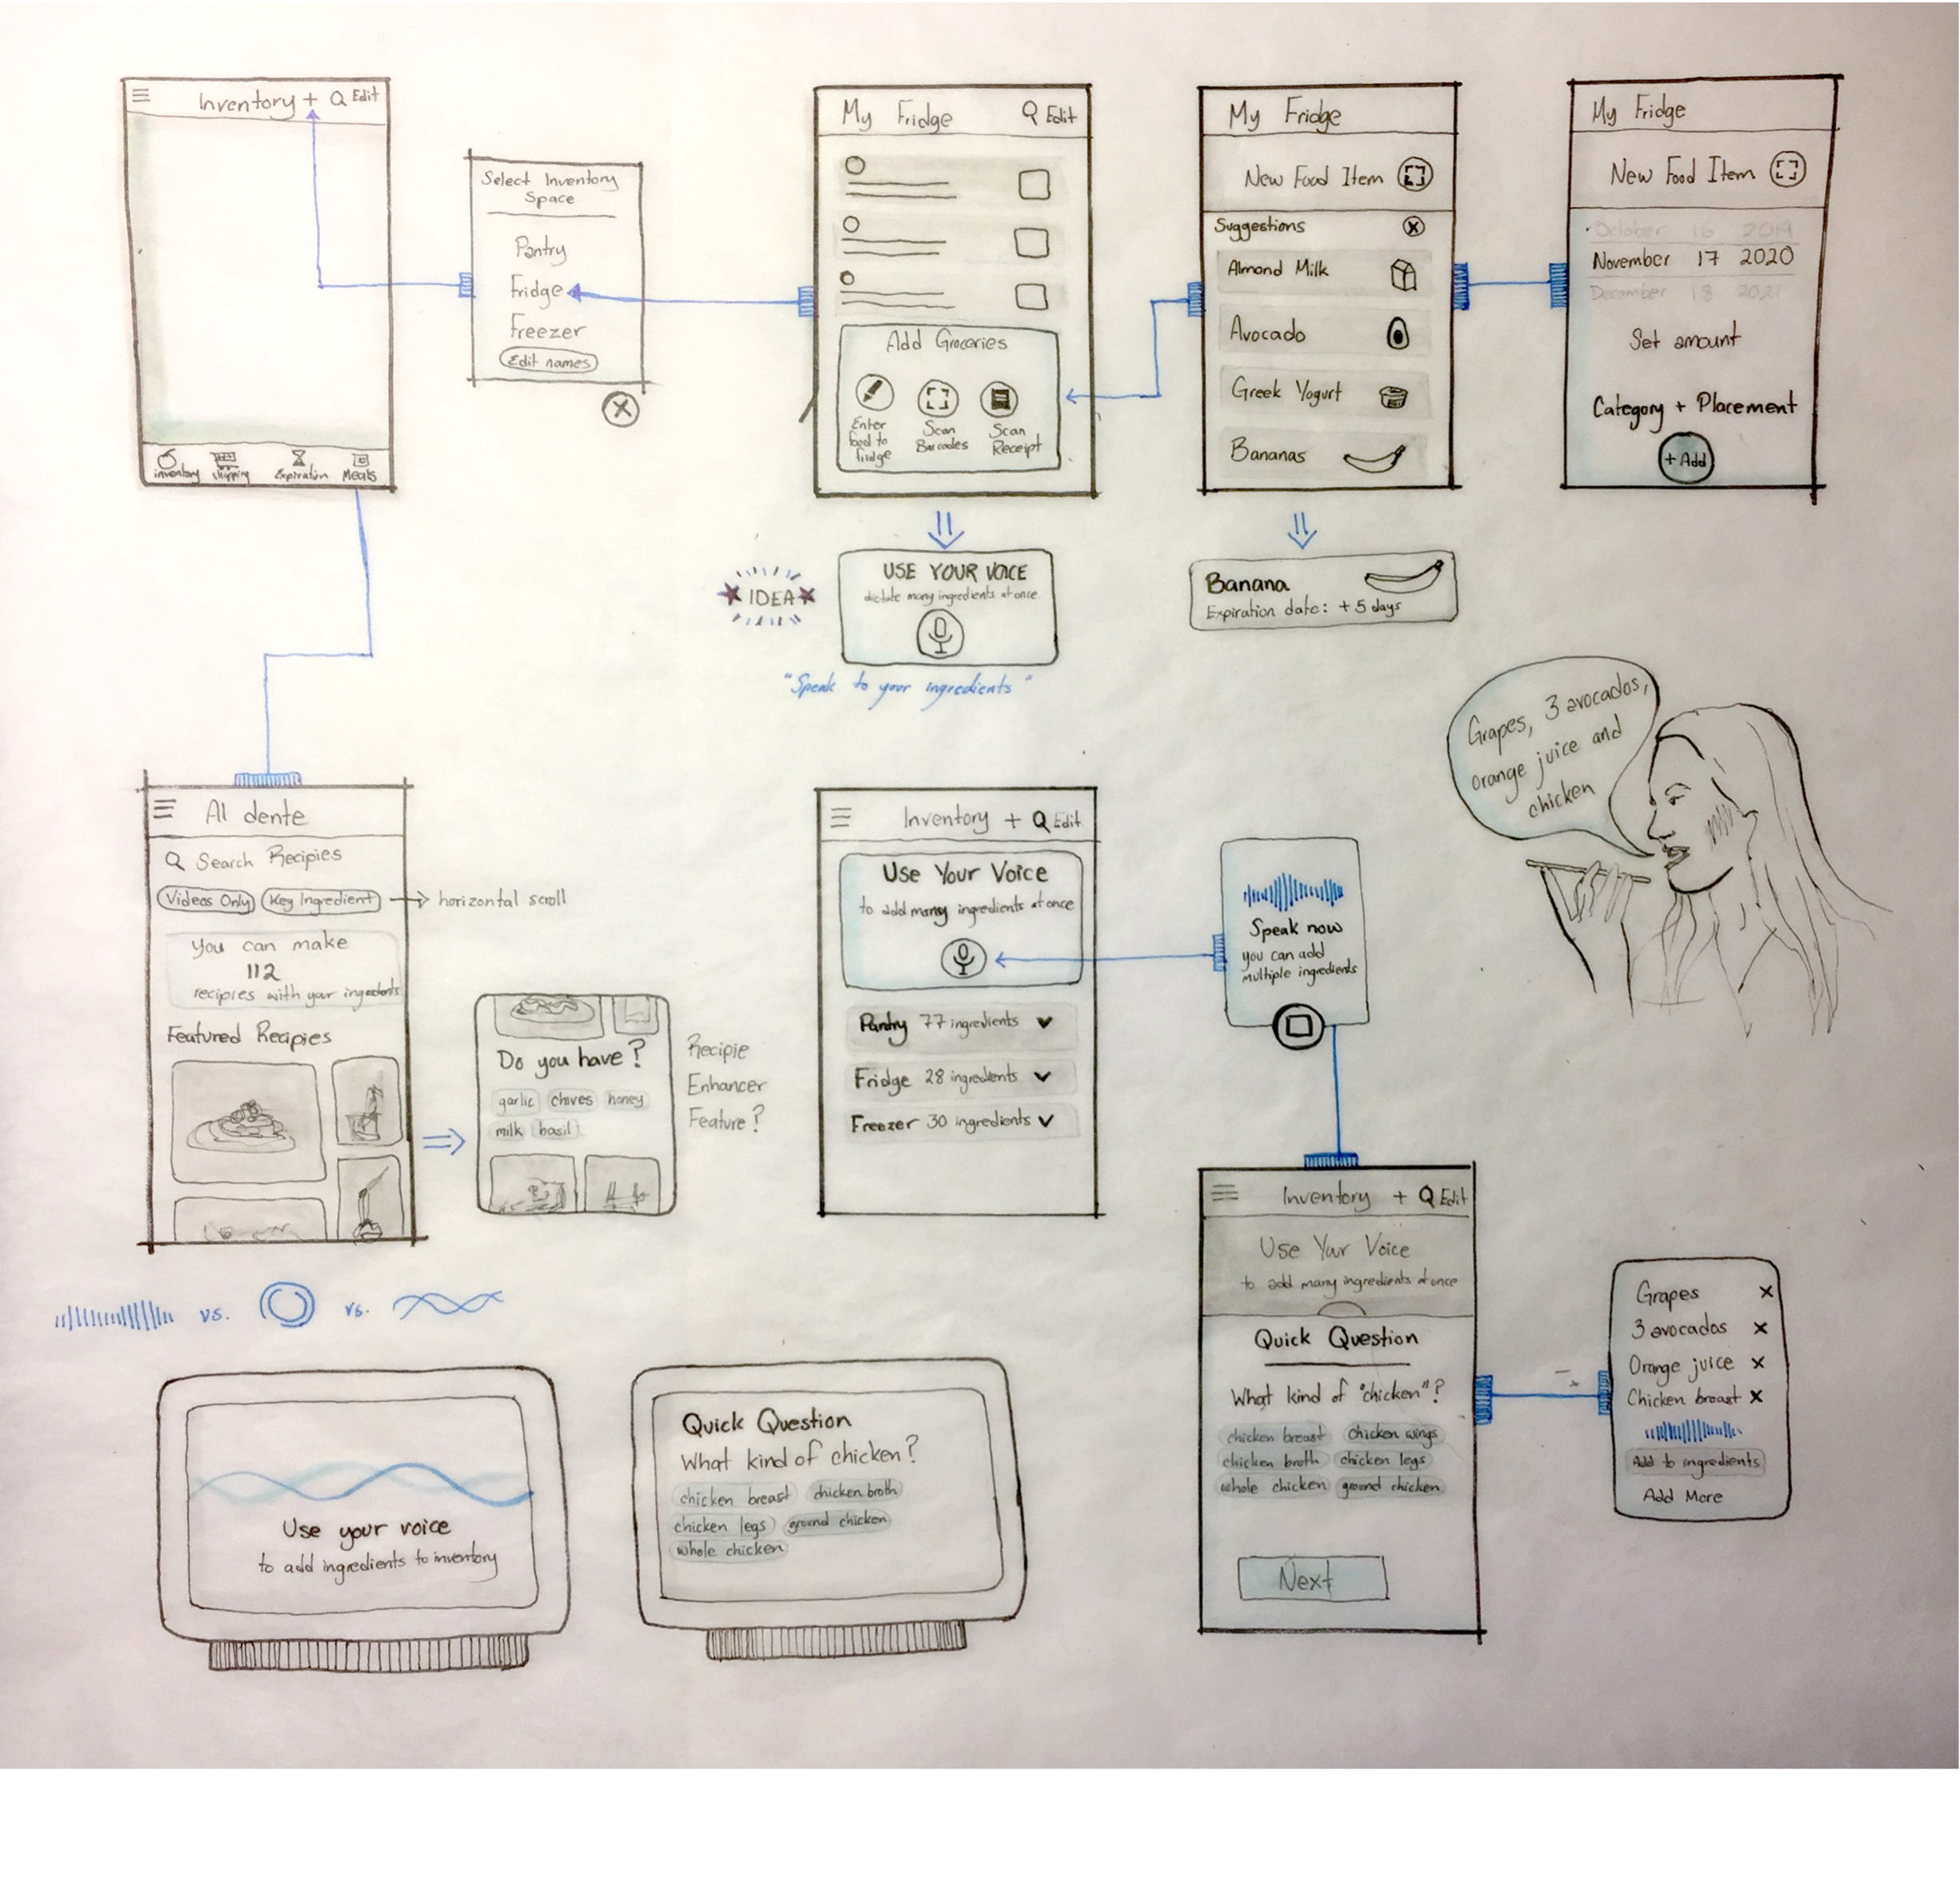 Inventory + Edit
inventory shipping Expiration Meals
Select Inventory
Space
Pantry
Fridge
Freezer
Edit names
My Fridge Edit
Add Groceries
Enter
food to
fridge
Scan
Barcodes
Scan
Receipt
My Fridge
New Food Item
Suggestions
Almond Milk
Avocado
Greek Yogurt
Bananas
My Fridge
New Food Item
October 16 2019
November 17 2020
December 18 2021
Set amount
Category + Placement
+ Add
IDEA
USE YOUR VOICE
dictate many ingredients at once
"Speak to your ingredients"
Banana
Expiration date: + 5 days
Grapes, 3 avocados,
orange juice and
chicken
Al dente
Search Recipies
Videos Only Key Ingredient horizontal scroll
You can make
112
recipies with your ingredients
Featured Recipies
Do you have?
garlic chives honey
milk basil
Recipie
Enhancer
Feature?
Inventory + Edit
Use Your Voice
to add many ingredients at once
Pantry 77 ingredients
Fridge 28 ingredients
Freezer 30 ingredients
Speak now
you can add
multiple ingredients
Inventory + Edit
Use Your Voice
to add many ingredients at once
Quick Question
What kind of "chicken"?
chicken breast chicken wings
chicken broth chicken legs
whole chicken ground chicken
Next
Grapes
3 avocados
Orange juice
Chicken breast
Add to ingredients
Add More
vs. vs.
Use your voice
to add ingredients to inventory
Quick Question
What kind of chicken?
chicken breast chicken broth
chicken legs ground chicken
whole chicken